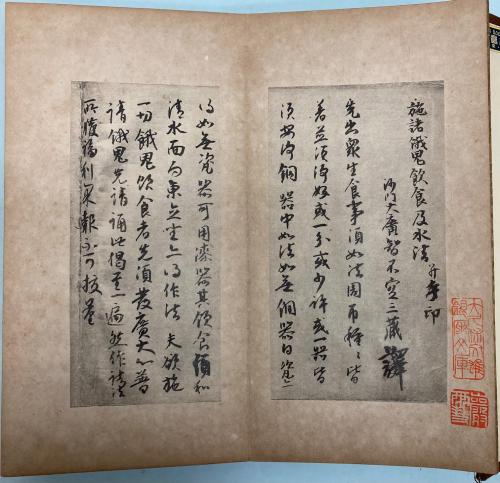 施諸餓鬼飲食及水法并手印
沙門大廣智不空三藏譯
先出眾生食事須如法周帀種〻皆
著並須淨好或一分或少許或一器皆
須安淨銅器中如法如無銅器白瓷亦
得如無瓷器可用漆器其飲食須和
清水面向東立坐亦得作法 夫欲施
一切餓鬼飲食者先須發廣大心普
請餓鬼先請誦此偈至一遍然作請法
所獲福利果報不可挍量